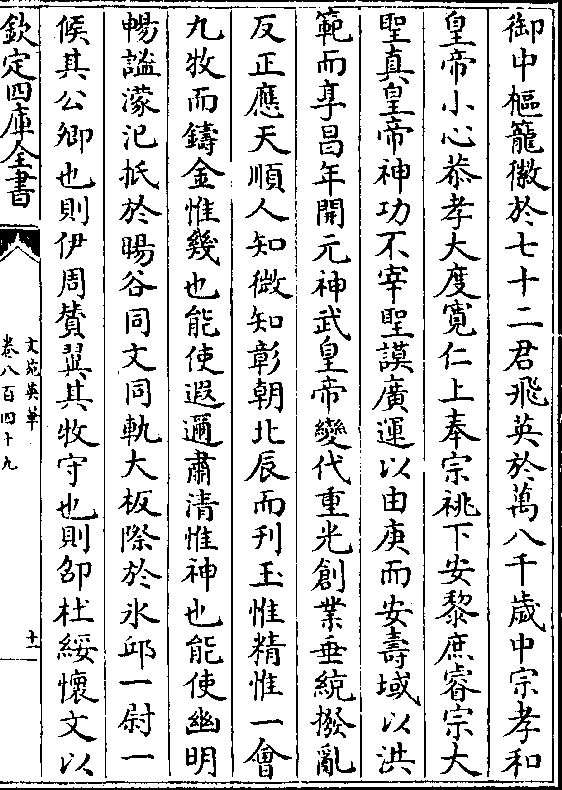 御中樞籠徽於七十二君飛英於萬八千歲中宗孝和
皇帝小心恭孝大度寛仁上奉宗祧下安黎庶睿宗大
聖真皇帝神功不宰聖謨廣運以由庚而安壽域以洪
範而享昌年開元神武皇帝變代重光創業垂統撥亂
反正應天順人知微知彰朝北辰而刋玉惟精惟一會
九牧而鑄金惟幾也能使遐邇肅清惟神也能使幽明
暢謐濛汜抵於暘谷同文同軌大板際於氷邱一尉一
候其公卿也則伊周賛翼其牧守也則邵杜綏懷文以
欽定四庫全書
文苑英華
卷八百四十九
十一